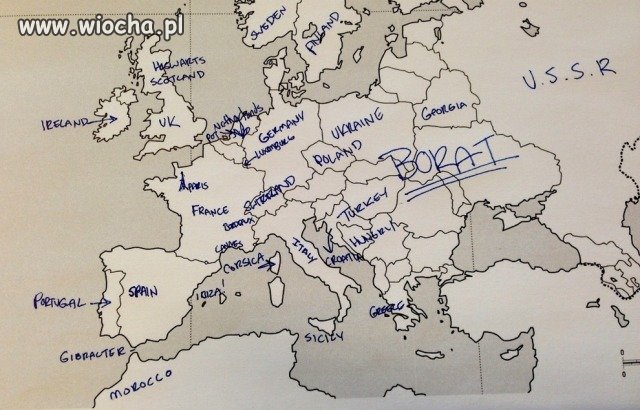 www.wiocha.pl
SWEDEN
FINLAND
HOGWARTS
SCOTLAND
U.S.S.R
IRELAND
UK
GERMANY
UKRAINE
GEORGIA
LUXEMBURG
POLAND
BORAT
PARIS
FRANCE
BORDEUX
CANNES
TURKEY
HUNGRLY
CORSICA
ITALY
CROATIA
PORTUGAL
SPAIN
IBIZA!
GREECE
SICILY
GIBRALTER
MOROCCO